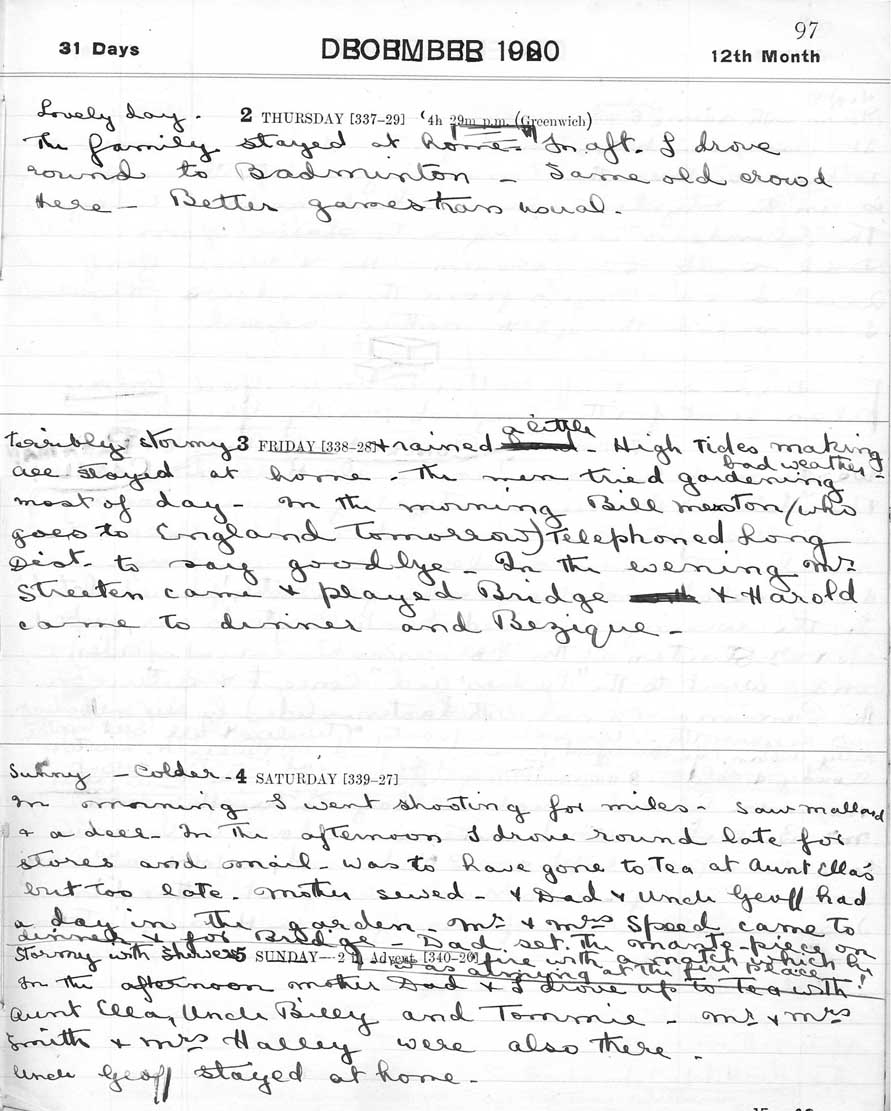 97
31 Days
12th Month
Lovely day. 2 THURSDAY [337-29] 4h 29m p.m. (Greenwich)
The family stayed at home. In aft. I drove
round to Badminton - Same old crowd
there - Better games than usual.
terribly stormy 3 FRIDAY [338-28] + rained a little - High Tides making
bad weather -
all stayed at home - The men tried gardening
most of day - In the morning Bill (who
goes to England Tomorrow) Telephoned Long
Dist. to say goodbye - In the evening Mr
Streeten came + played Bridge + Harold
came to dinner and Bezique -
Sunny - Colder - 4 SATURDAY [339-27]
In morning I went shooting for miles - Saw mallard
+ a deer - In the afternoon I drove round late for
stores and mail - was to have gone to Tea at Aunt Ella's
but too late. Mother sewed - + Dad + Uncle Geoff had
a day in the garden - Mr + Mrs Speed came to
dinner + for Bridge - Dad set the mantle-piece on
fire with a match which he
Stormy with showers 5 SUNDAY - 2 Advent [340-26]
was at the fire place!
In the afternoon mother Dad + I drove up to Tea with
Aunt Ella, Uncle Billy and Tommie - Mr + Mrs
Smith + Mrs Halley were also there -
Uncle Geoff stayed at home -